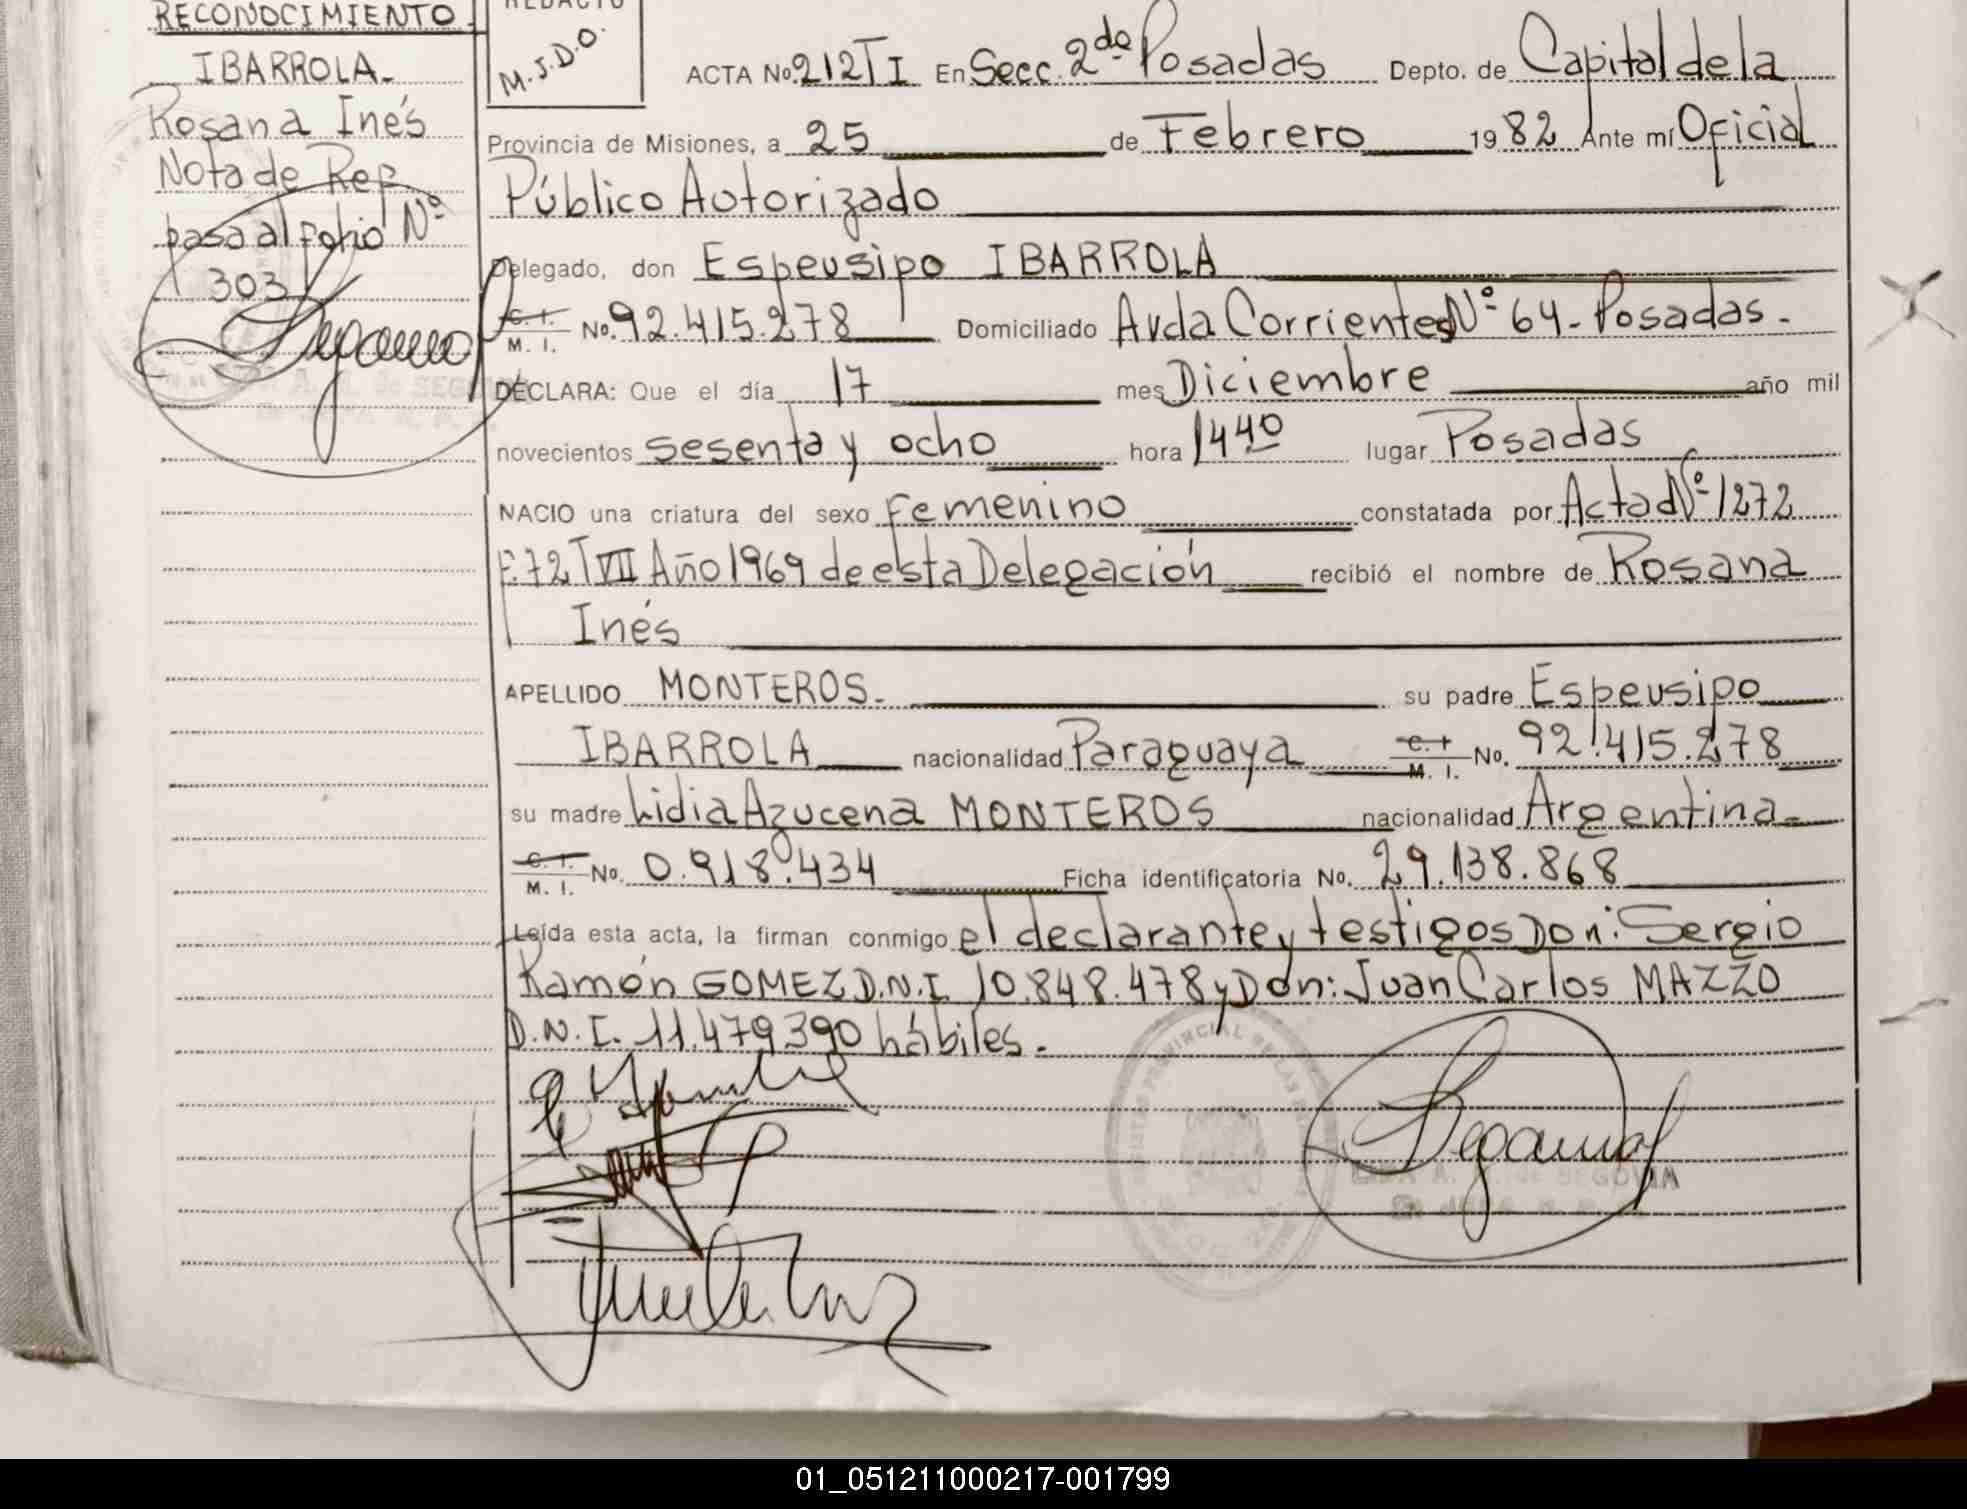 RECONOCIMIENTO
IBARROLA.-
Rosana Inés
Nota de Rep
pasa al folio Nº
303
REDACTO
M.J.D.O.
ACTA No. 212 T I En Secc. 2da Posadas Depto. de Capital de la
Provincia de Misiones, a 25 de Febrero 1982 Ante mí Oficial
Público Autorizado
Delegado, don Espeusipo IBARROLA
C. I. M. I. No. 92.415.278 Domiciliado Avda Corrientes Nº 64 - Posadas.-
DECLARA: Que el día 17 mes Diciembre año mil
novecientos sesenta y ocho hora 1440 lugar Posadas
NACIO una criatura del sexo femenino constatada por Acta Nº 1272
F. 72 T VII Año 1969 de esta Delegación recibió el nombre de Rosana
Inés
APELLIDO MONTEROS.- su padre Espeusipo
IBARROLA nacionalidad Paraguaya C. I. M. I. No. 92.415.278
su madre Lidia Azucena MONTEROS nacionalidad Argentina.-
C. I. M. I. No. 0.918.434 Ficha identificatoria No. 29.138.868
Leída esta acta, la firman conmigo el declarante y testigos Don: Sergio
Ramón GOMEZ D.N.I. 10.848.478 y Don: Juan Carlos MAZZO
D.N.I. 11.479.390 hábiles.-
A. de SEGOVIA
01_051211000217-001799